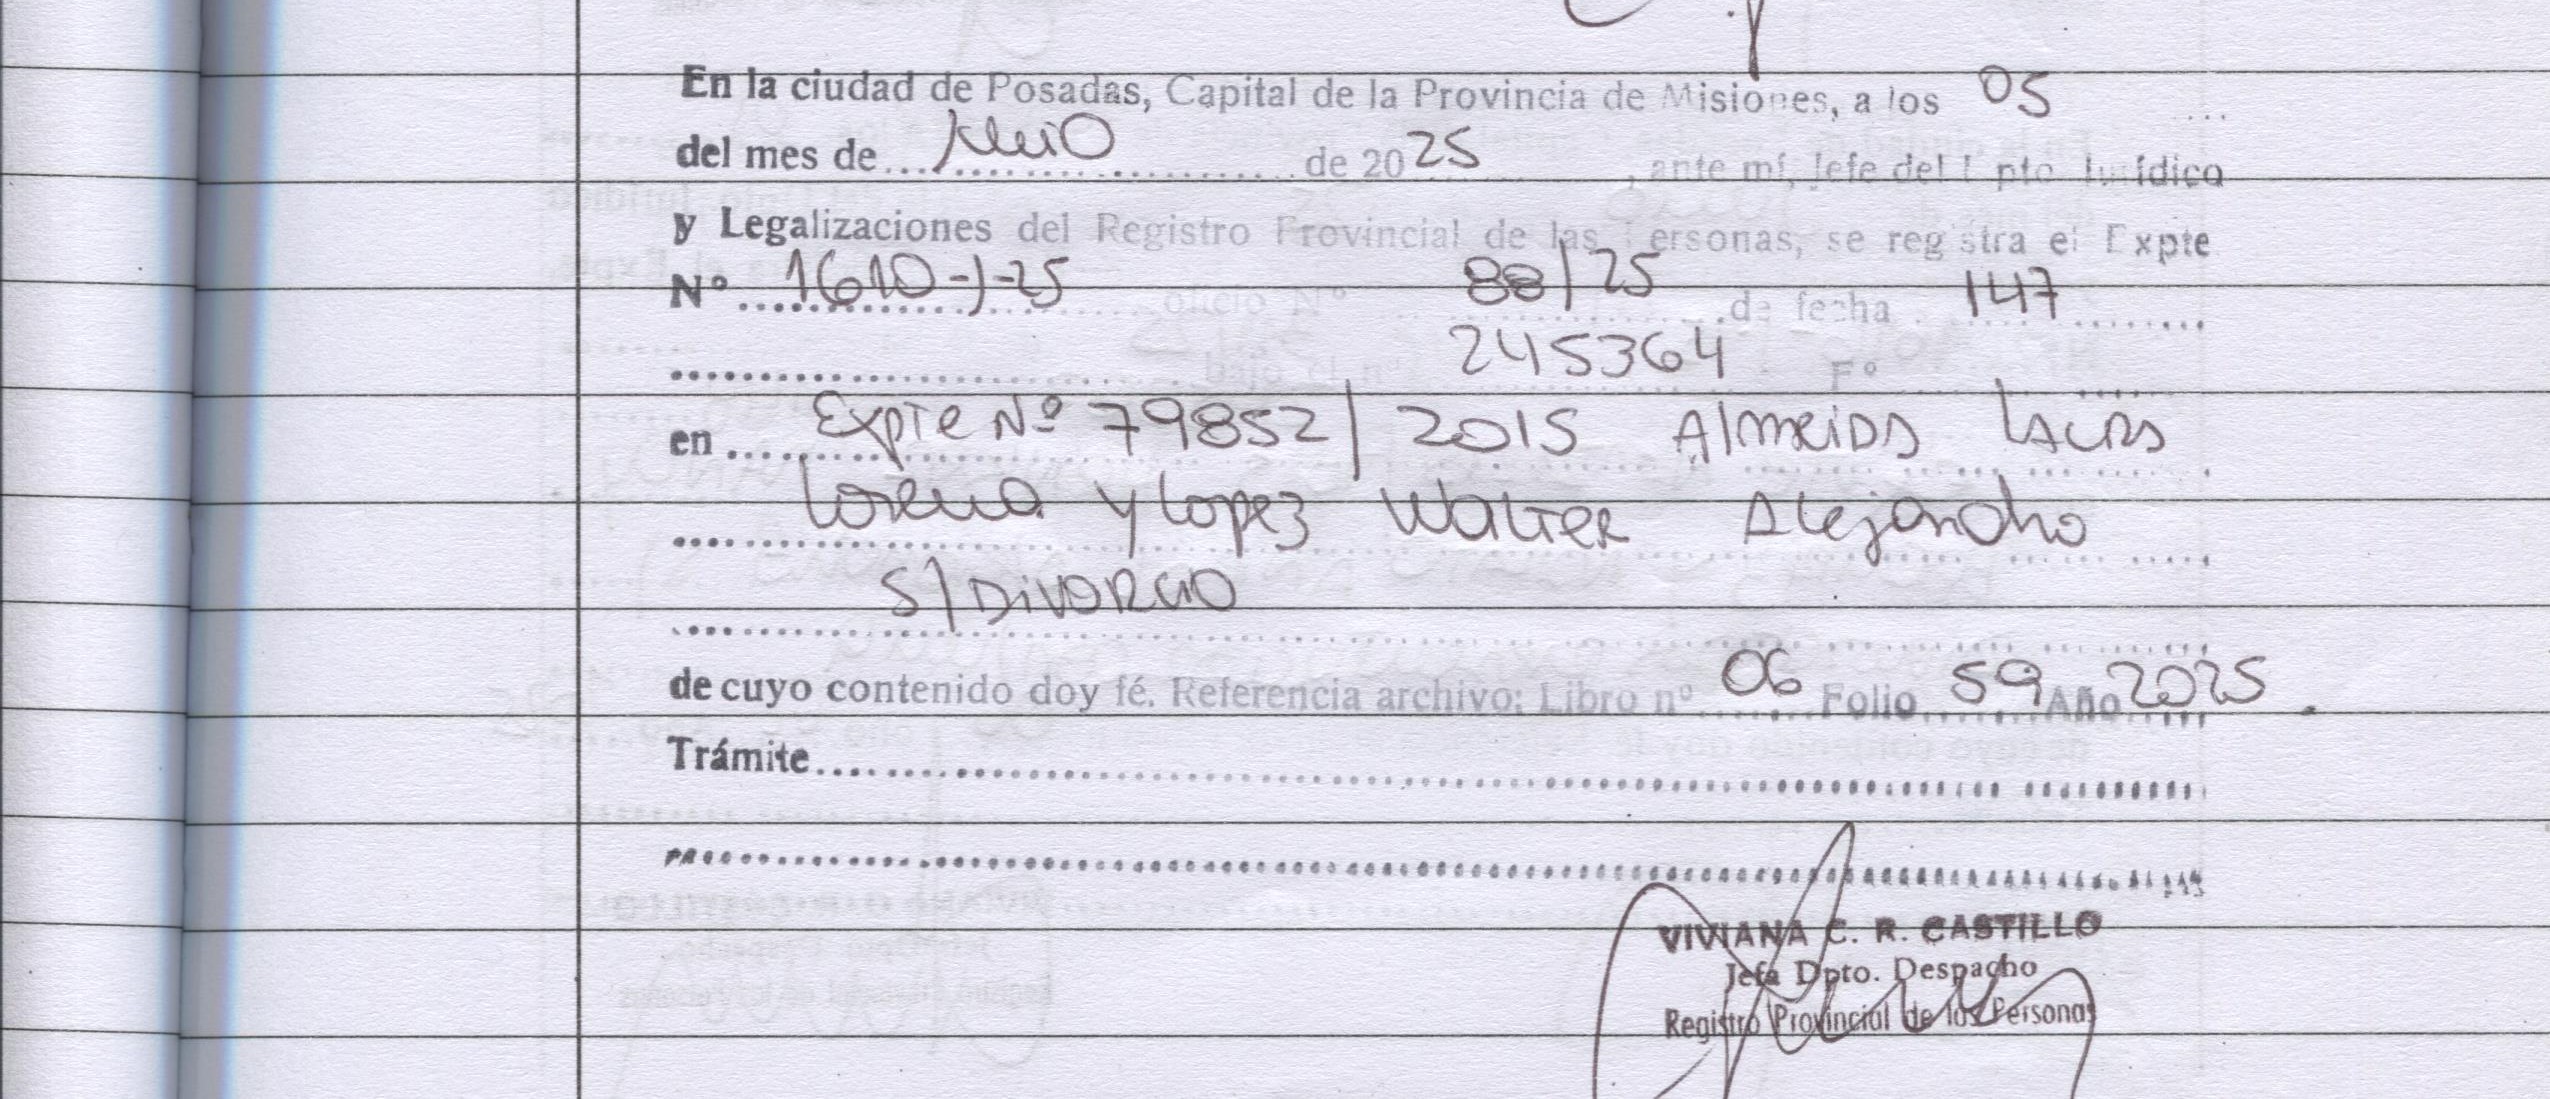 En la ciudad de Posadas, Capital de la Provincia de Misiones, a los 05
del mes de de 2025, ante mí, Jefe del Dpto Jurídico
y Legalizaciones del Registro Provincial de las Personas, se registra el Expte
Nº 1610-J-25 oficio Nº 88/25 de fecha 147
245364 Fº
en Expte Nº 79852/2015 Almeida Laura
Lorena y Lopez Walter Alejandro
S/Divorcio
de cuyo contenido doy fé. Referencia archivo: Libro nº 06 Folio 59 Año 2025.
Trámite
VIVIANA C. R. CASTILLO
Jefa Dpto. Despacho
Registro Provincial de las Personas